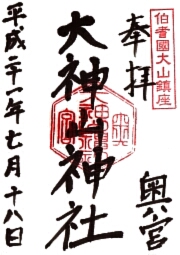 伯耆國大山鎮座
奉拝
奥宮
大神山神社
平成二十一年七月十八日